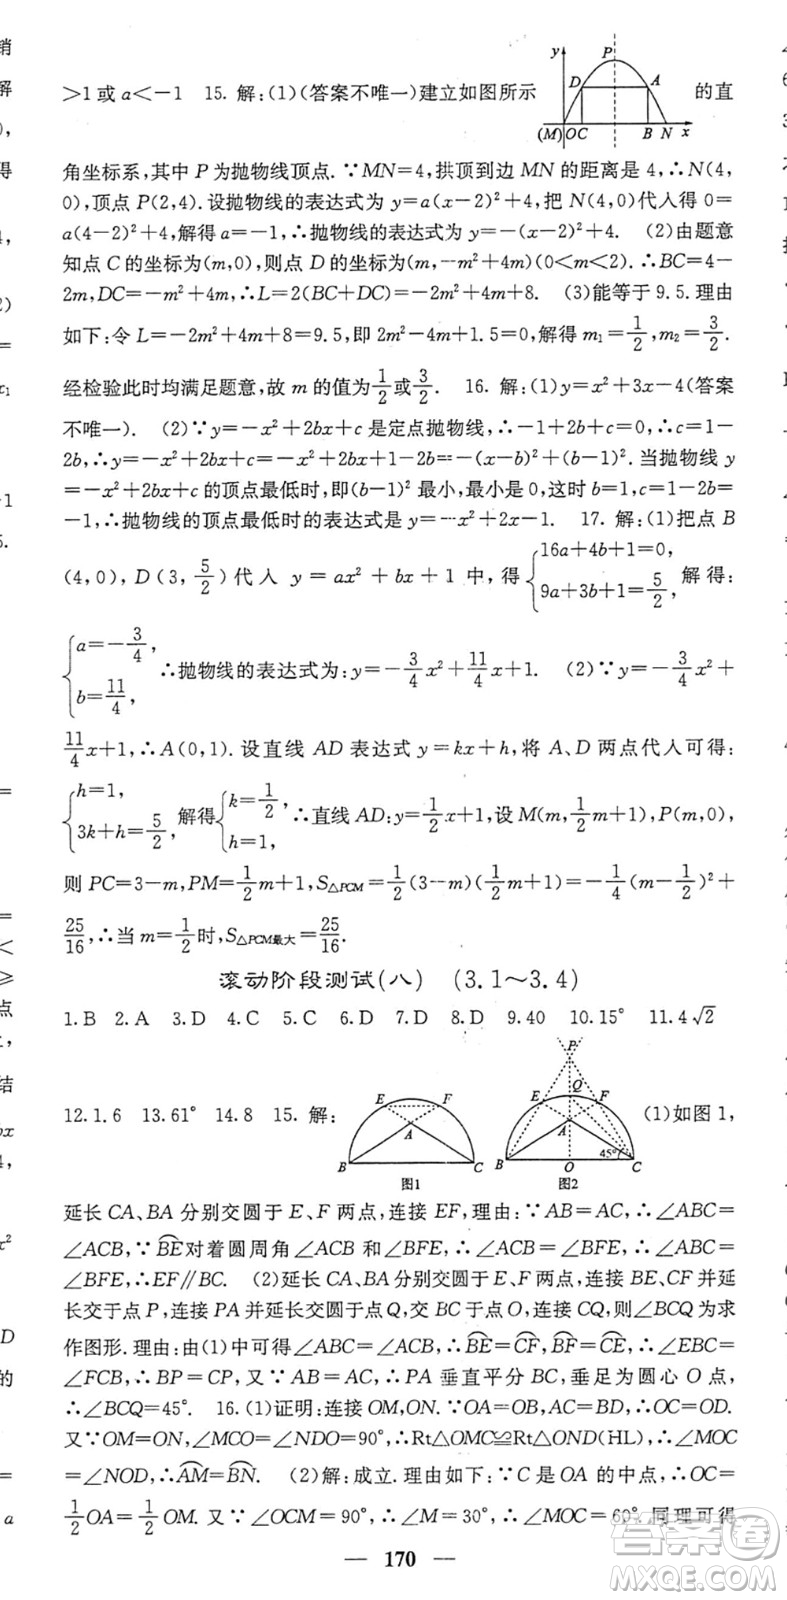 >1或a<-1 15. 解:(1)(答案不唯一)建立如图所示 的直
y P D A (M) O C B N x
角坐标系,其中 P 为抛物线顶点.∵MN=4,拱顶到边 MN 的距离是 4,∴N(4,
0),顶点 P(2,4).设抛物线的表达式为 y=a(x-2)²+4,把 N(4,0)代人得 0=
a(4-2)²+4,解得 a=-1,∴抛物线的表达式为 y=-(x-2)²+4. (2)由题意
知点 C 的坐标为(m,0),则点 D 的坐标为(m,-m²+4m)(0<m<2).∴BC=4-
2m,DC=-m²+4m,∴L=2(BC+DC)=-2m²+4m+8. (3)能等于 9.5.理由
如下:令 L=-2m²+4m+8=9.5,即 2m²-4m+1.5=0,解得 m₁=1/2,m₂=3/2.
经检验此时均满足题意,故 m 的值为1/2或3/2. 16. 解:(1)y=x²+3x-4(答案
不唯一). (2)∵y=-x²+2bx+c 是定点抛物线,∴-1+2b+c=0,∴c=1-
2b,∴y=-x²+2bx+c=-x²+2bx+1-2b=-(x-b)²+(b-1)².当抛物线 y
=-x²+2bx+c 的顶点最低时,即(b-1)² 最小,最小是 0,这时 b=1,c=1-2b=
-1,∴抛物线的顶点最低时的表达式是 y=-x²+2x-1. 17. 解:(1)把点 B
(4,0),D(3,5/2)代入 y=ax²+bx+1 中,得{16a+4b+1=0, 9a+3b+1=5/2,解得:
{a=-3/4, b=11/4, ∴抛物线的表达式为:y=-3/4x²+11/4x+1. (2)∵y=-3/4x²+
11/4x+1,∴A(0,1).设直线 AD 表达式 y=kx+h,将 A、D 两点代人可得:
{h=1, 3k+h=5/2, 解得{k=1/2, h=1, ∴直线 AD:y=1/2x+1,设 M(m,1/2m+1),P(m,0),
则 PC=3-m,PM=1/2m+1,S△PCM=1/2(3-m)(1/2m+1)=-1/4(m-1/2)²+
25/16,∴当 m=1/2时,S△PCM最大=25/16.
滚动阶段测试(八) (3.1～3.4)
1.B 2.A 3.D 4.C 5.C 6.D 7.D 8.D 9.40 10.15° 11.4√2
12.1.6 13.61° 14.8 15. 解: (1)如图 1,
E F A B C 图1
P Q E F A B O 45° C 图2
延长 CA、BA 分别交圆于 E、F 两点,连接 EF,理由:∵AB=AC,∴∠ABC=
∠ACB,∵BE⌒对着圆周角∠ACB 和∠BFE,∴∠ACB=∠BFE,∴∠ABC=
∠BFE,∴EF∥BC. (2)延长 CA、BA 分别交圆于 E、F 两点,连接 BE、CF 并延
长交于点 P,连接 PA 并延长交圆于点 Q,交 BC 于点 O,连接 CQ,则∠BCQ 为求
作图形.理由:由(1)中可得∠ABC=∠ACB,∴BE⌒=CF⌒,BF⌒=CE⌒,∴∠EBC=
∠FCB,∴BP=CP,又∵AB=AC,∴PA 垂直平分 BC,垂足为圆心 O 点,
∴∠BCQ=45°. 16.(1)证明:连接 OM,ON.∵OA=OB,AC=BD,∴OC=OD.
又∵OM=ON,∠MCO=∠NDO=90°,∴Rt△OMC≌Rt△OND(HL),∴∠MOC
=∠NOD,∴AM⌒=BN⌒. (2)解:成立.理由如下:∵C 是 OA 的中点,∴OC=
1/2OA=1/2OM.又∵∠OCM=90°,∴∠M=30°,∴∠MOC=60°.同理可得
— 170 —
答案圈
MXQE.COM